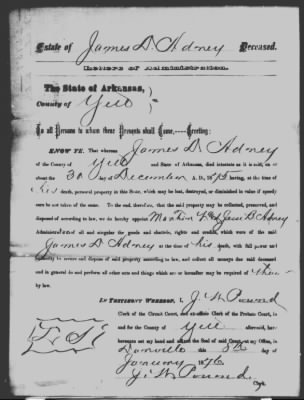 Estate of James D. Adney Deceased.
Letters of Administration.
The State of Arkansas,
County of Yell
To all Persons to whom these Presents shall Come,----Greeting:
KNOW YE, That whereas James D. Adney
of the County of Yell and State of Arkansas, died intestate as it is said, on or
about the 30 day of December A. D., 1875 having, at the time of
his death, personal property in this State, which may be lost, destroyed, or diminished in value if speedy
care be not taken of the same. To the end, therefore, that the said property may be collected, preserved, and
disposed of according to law, we do hereby appoint Adney
Administrators of all and singular the goods and chattels, rights and credits, which were of the said
James D Adney at the time of his death, with full power and
authority to secure and dispose of said property according to law, and collect all moneys due said deceased
and in general to do and perform all other acts and things which are or hereafter may be required of them
by law.
IN TESTIMONY WHEREOF, I, J. W. Pound
Clerk of the Circuit Court, and ex-officio Clerk of the Probate Court, in
and for the County of Yell aforesaid, have
hereunto set my hand and affixed the Seal of said Court, at my Office, in
Danville this 8th day of
January 1876
J. W. Pound
Clerk.
L. S.